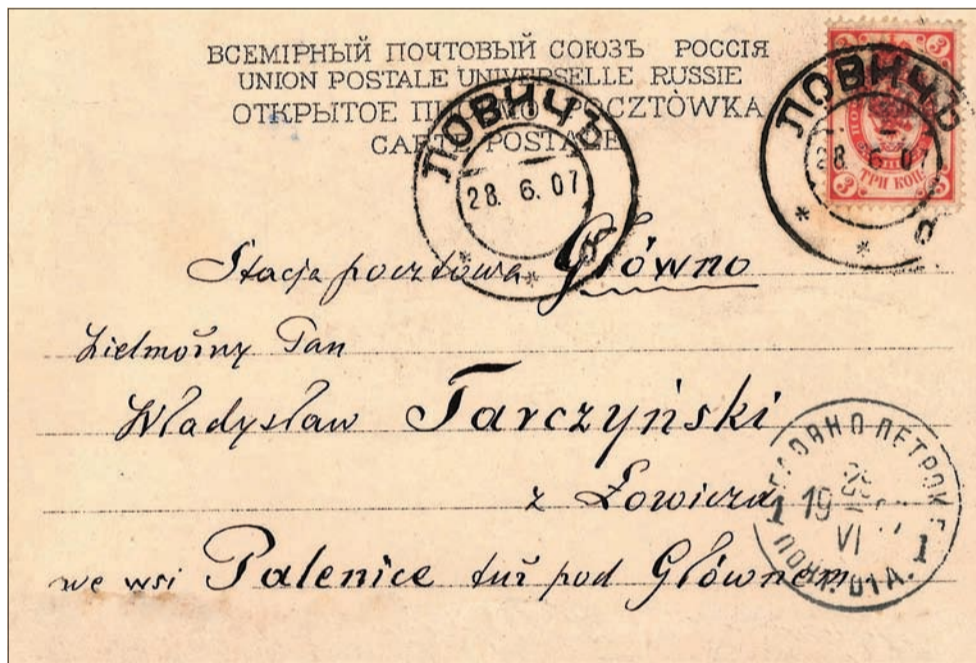 ВСЕМІРНЫЙ ПОЧТОВЫЙ СОЮЗЪ РОССІЯ
UNION POSTALE UNIVERSELLE RUSSIE
ОТКРЫТОЕ ПИСЬМО POCZTÒWKA
CARTE POSTALE
ЛОВИЧЪ
28. 6. 07
ЛОВИЧЪ
28. 6. 07
3 3
ТРИ КОП.
3 3
Stacja pocztowa Główno
Wielmożny Pan
Władysław Tarczyński
z Łowicza
we wsi Palenice tuż pod Głównem
ГЛОВНО ПЕТРОК. Г.
1 19 VI 1
ПОЧТ. ОТД.